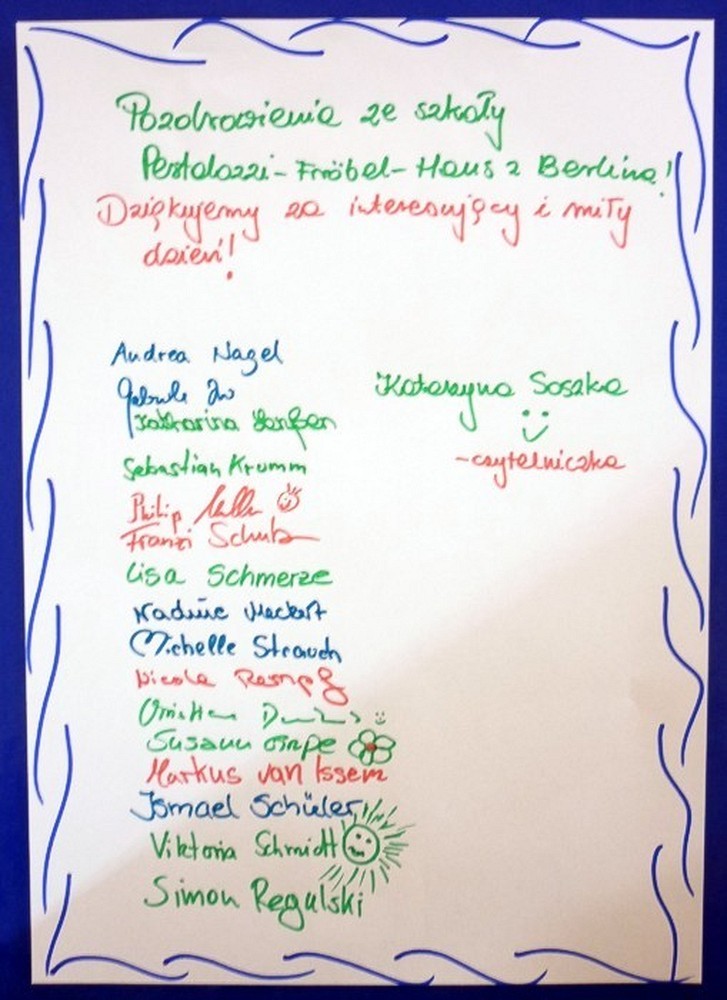 Pozdrowienia ze szkoły
Pestalozzi-Fröbel-Haus z Berlina!
Dziękujemy za interesujący i miły
dzień!
Andrea Nagel
Katarzyna Soszka
Katharina
-czytelniczka
Sebastian Krumm
Philip
Franzi Schulz
Lisa Schmerze
Nadine Meckert
Michelle Strauch
Nicole
Susann
Markus van Issem
Ismael Schüler
Viktoria Schmidt
Simon Regulski